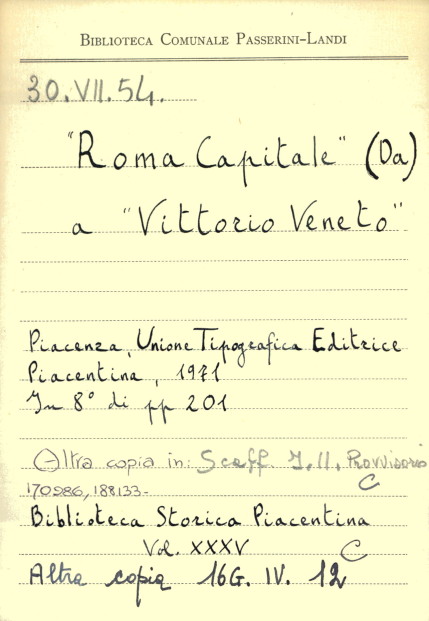 BIBLIOTECA COMUNALE PASSERINI-LANDI
30.VII.54.
"Roma Capitale" (Da)
a "Vittorio Veneto"
Piacenza, Unione Tipografica Editrice
Piacentina, 1971
In 8° di pp 201
Altra copia in: Scaff. I.II. Provvisorio
C
170986, 188133-
Biblioteca Storica Piacentina
Vol. XXXV
C
Altra copia 16G. IV. 12